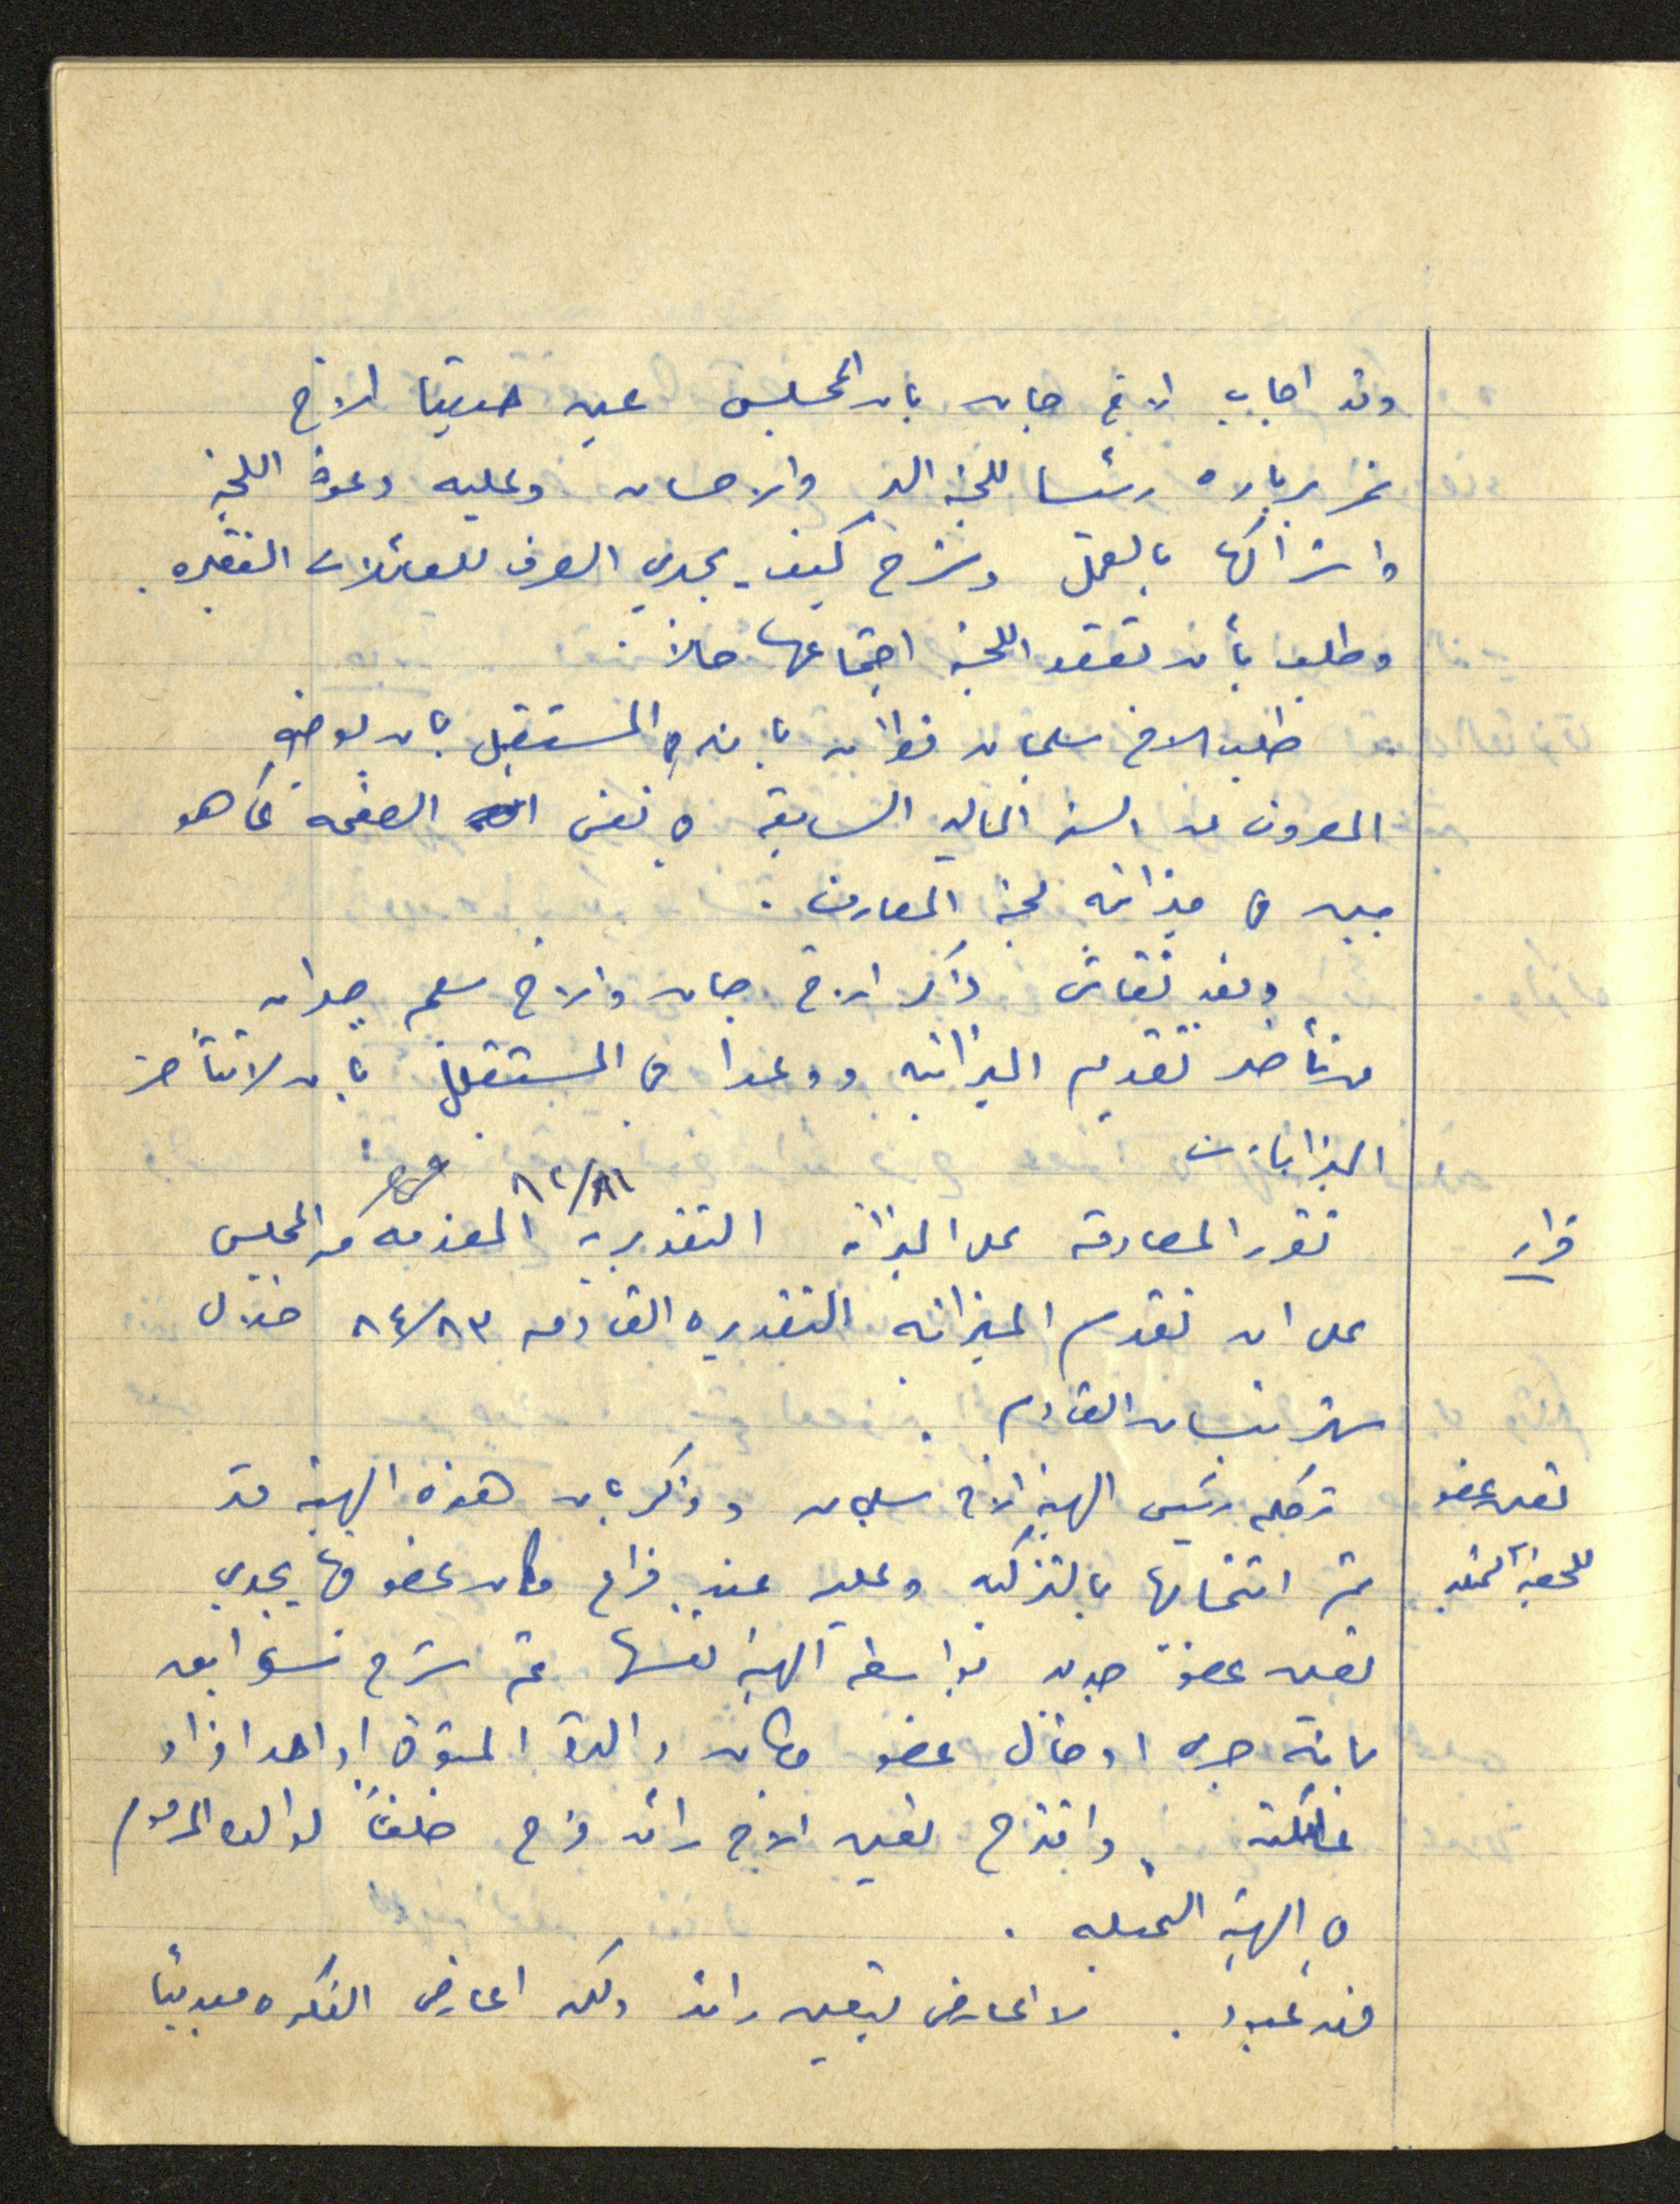 وقد اجاب الاخ جان بان المجلس عين حديثا الاخ
نمر برباره رئيسا للجنة البر والاحسان وعليه دعوة اللجنة
واشراكها بالعمل وشرح كيف يجري الصرف للعائلات الفقيره.
وطلب بأن تعقد اللجنة اجتماعها حالاً.
طلب الاخ سليمان قطران بانه في المستقبل بان يوضع
المصروف من السنة المالية السابقة في نفس الصفحة كما هو
مبين في ميزانية لجنة المعارف.
وبعد نقاش ذكر الاخ جان والاخ سليم
من تأخير تقديم الميزانيه ووعدا في المستقبل بان لا تتأخر
الميزانيات
قرار
تقرر المصادقة على الميزانية التقديرية ٨٢/٨١ المقدمه من المجلس
على ان تقدم الميزانيه التقديريه القادمه ٨٤/٨٣ خلال
شهر نيسان القادم.
تعيين عضو
للهيئة التمثيلية
تكلم رئيس الهيئة الاخ سليمان وذكر بان هذه الهيئة قد
تم انتخابها بالتزكيه وعليه عند فراغ مكان عضو فيها يجري
تعيين عضو جديد بواسطة الهيئة نفسها ثم شرح سوابق
بانه جرى ادخال عضو مكان والده المتوفي او احد افراد
عائلته. واقترح تعيين الاخ رائد فرح خلفاً لوالده المرحوم
في الهيئة التمثيليه.
فهد عبود. لا اعارض بتعيين رائد ولكن اعارض الفكره مبدئياً